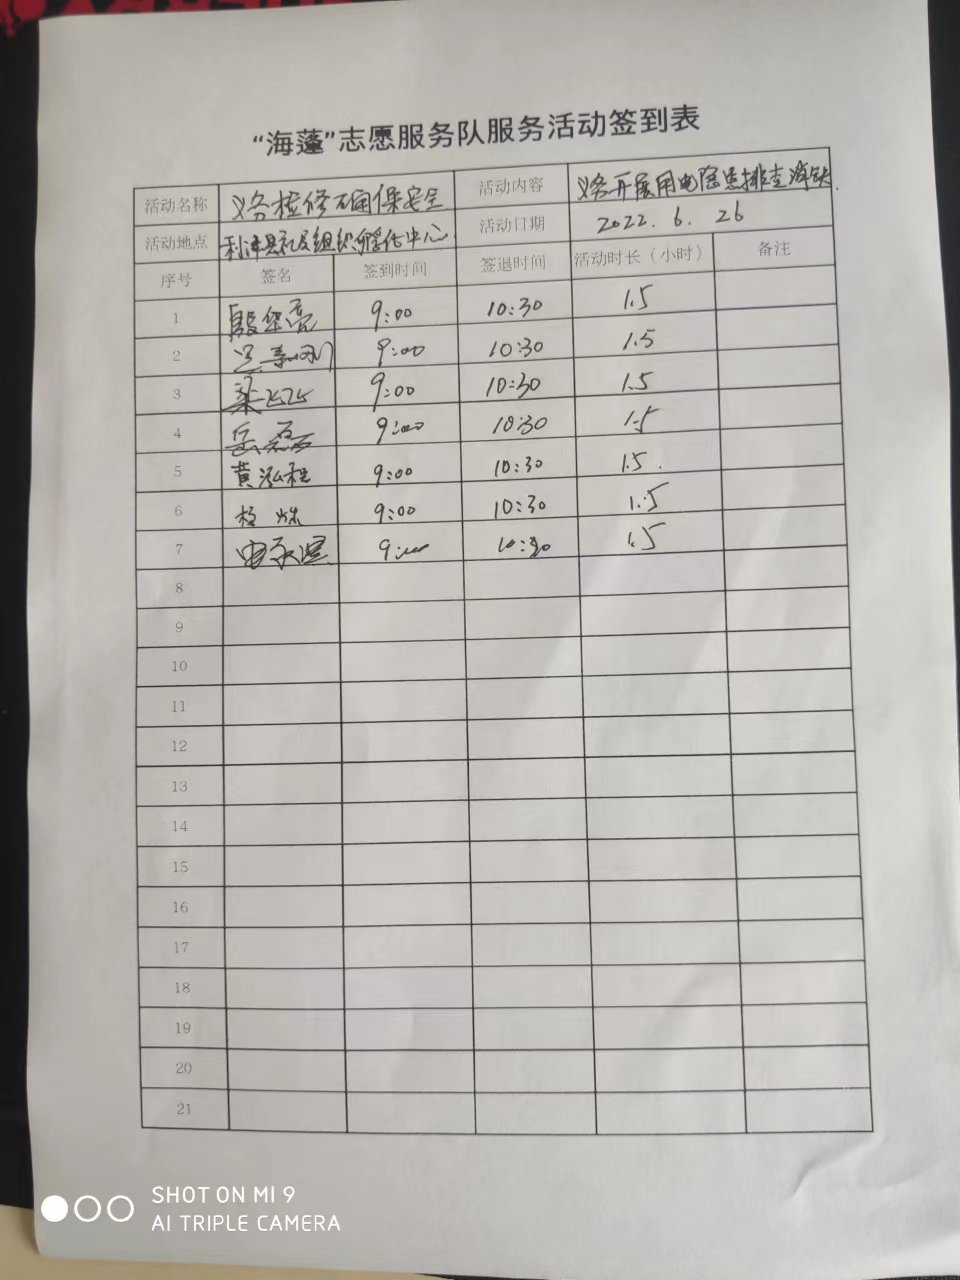 “海蓬”志愿服务队服务活动签到表
活动名称 义务检修确保安全 活动内容 义务开展用电隐患排查消缺.
活动地点 利津县社会组织孵化中心 活动日期 2022. 6. 26
序号 签名 签到时间 签退时间 活动时长（小时） 备注
1 9:00 10:30 1.5
2 9:00 10:30 1.5
3 梁 9:00 10:30 1.5
4 岳磊 9:00 10:30 1.5
5 黄泓程 9:00 10:30 1.5.
6 9:00 10:30 1.5
7 9:00 10:30 1.5
8
9
10
11
12
13
14
15
16
17
18
19
20
21
SHOT ON MI 9
AI TRIPLE CAMERA